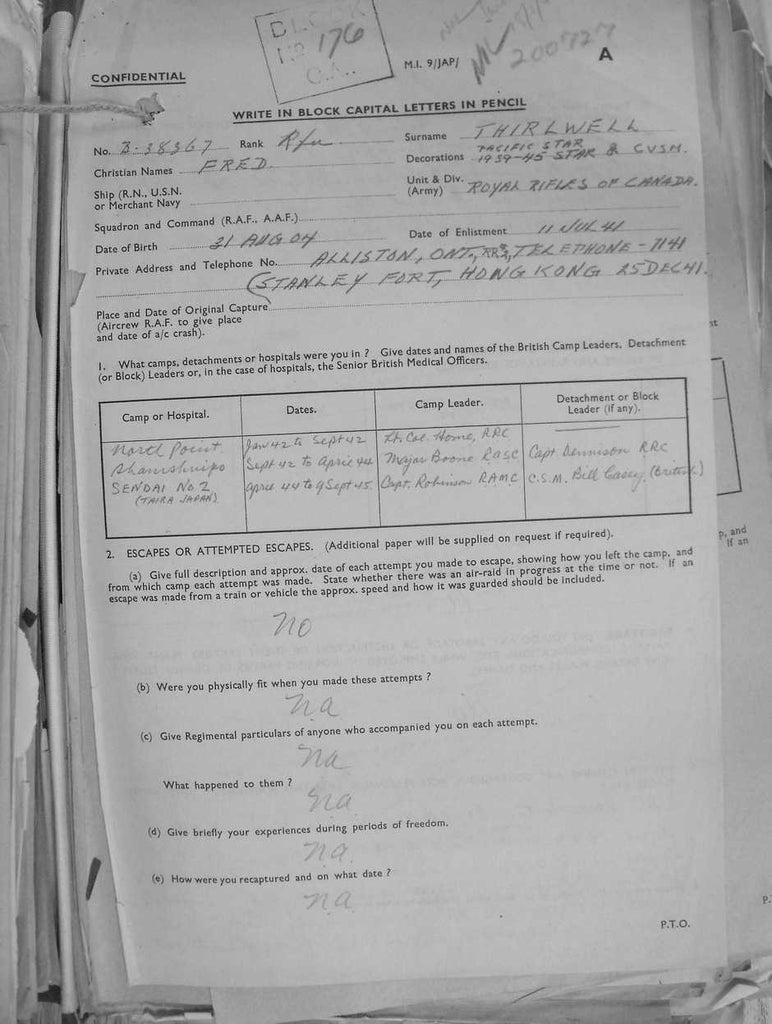 BLOCK
No 176
G.A.
M.I. 9/JAP/
200727
A
CONFIDENTIAL
WRITE IN BLOCK CAPITAL LETTERS IN PENCIL
No. B-38367 Rank Rfn Surname THIRLWELL
Christian Names FRED Decorations PACIFIC STAR 1939-45 STAR & CVSM.
Ship (R.N., U.S.N. or Merchant Navy
Unit & Div. (Army) ROYAL RIFLES OF CANADA.
Squadron and Command (R.A.F., A.A.F.)
Date of Birth 31 AUG 04 Date of Enlistment 11 JUL 41
Private Address and Telephone No. ALLISTON, ONT., RR3, TELEPHONE - 7141
(STANLEY FORT, HONG KONG 25 DEC 41.
Place and Date of Original Capture
(Aircrew R.A.F. to give place
and date of a/c crash).
1. What camps, detachments or hospitals were you in ? Give dates and names of the British Camp Leaders, Detachment
(or Block) Leaders or, in the case of hospitals, the Senior British Medical Officers.
Camp or Hospital. Dates. Camp Leader. Detachment or Block Leader (if any).
North Point Jan 42 to Sept 42 Lt. Col. Home, RRC
Shamshuipo Sept 42 to April 44 Major Boone RASC Capt Dennison RRC
SENDAI No. 2 April 44 to 9 Sept 45. Capt. Robinson RAMC C.S.M. Bill Casey (British)
(TAIRA JAPAN)
2. ESCAPES OR ATTEMPTED ESCAPES. (Additional paper will be supplied on request if required).
(a) Give full description and approx. date of each attempt you made to escape, showing how you left the camp, and
from which camp each attempt was made. State whether there was an air-raid in progress at the time or not. If an
escape was made from a train or vehicle the approx. speed and how it was guarded should be included.
No
(b) Were you physically fit when you made these attempts ?
na
(c) Give Regimental particulars of anyone who accompanied you on each attempt.
na
What happened to them ?
na
(d) Give briefly your experiences during periods of freedom.
na.
(e) How were you recaptured and on what date ?
na
P.T.O.